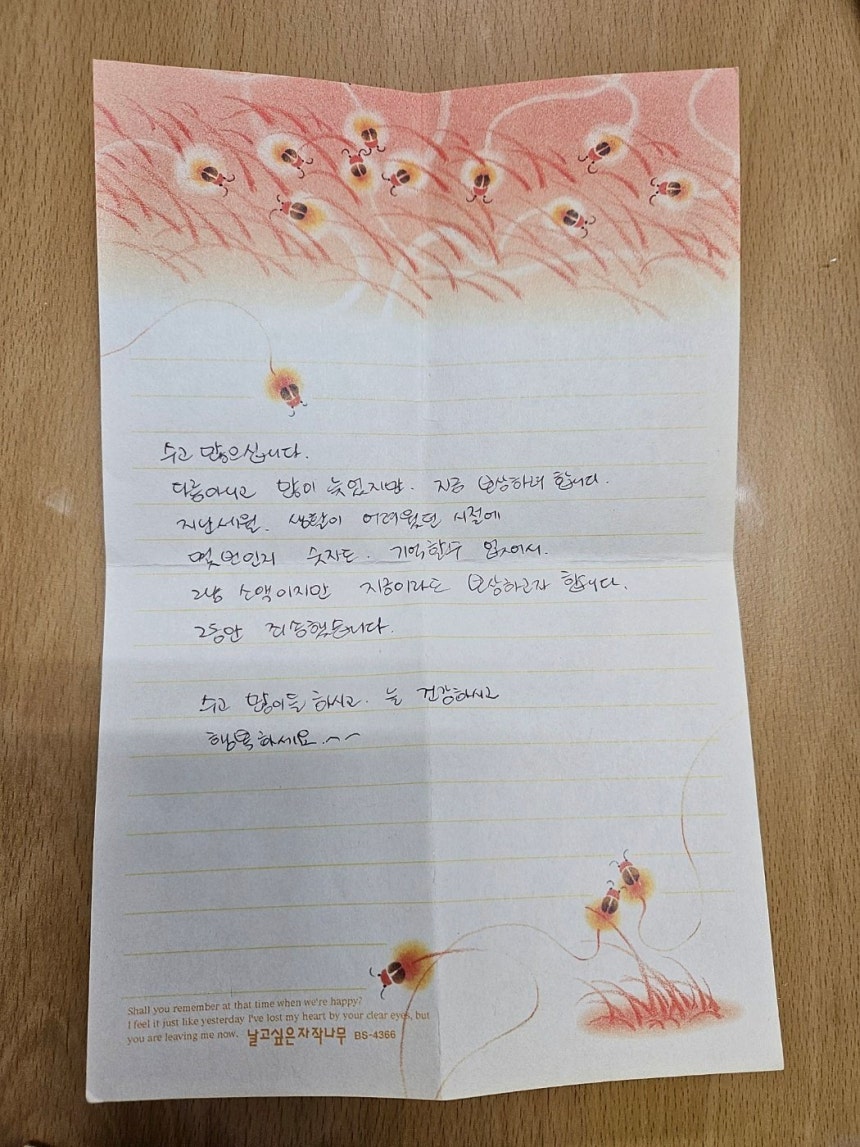 수고 많으십니다.
다름아니고 많이 늦었지만. 지금 보상하려 합니다.
지난세월. 생활이 어려웠던 시절에
몇번인지 숫자도. 기억할수 없어서.
그냥 소액이지만 지금이라도 보상하고자 합니다.
그동안 죄송했습니다.
수고 많이들 하시고. 늘 건강하시고
행복하세요.~~
Shall you remember at that time when we're happy?
I feel it just like yesterday I've lost my heart by your clear eyes, but
you are leaving me now. 날고싶은자작나무 BS-4366